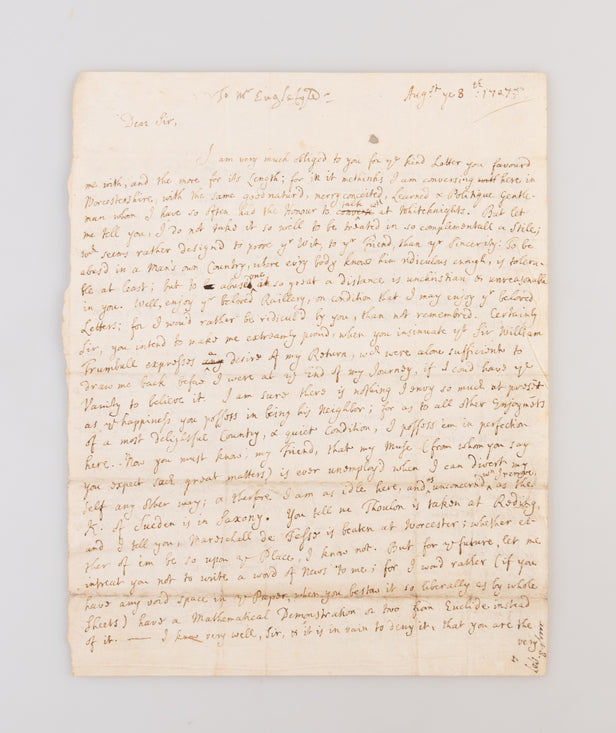 To Mr Englefyld
Aug.st ye 8 th: 1707
Dear Sir,
I am very much obliged to you for yr kind Letter you favourd
me with, and the more for its Length; for in it methinks I am conversing with here in
Worcestershire, with the same goodnaturd, merry conceited, Learned & Politique Gentle-
man whom I have so often had the Honour to talk at Whiteknights. But let
me tell you, I do not take it so well to be treated in so complementall a Stile;
wch seems rather design'd to prove yr Wit, to yr Friend, than yr Sincerity. To be
abusd in a Man's own Country, where evry body knows him ridiculous enough, is tolera-
ble at least; but to abuse one at so great a distance is unchristian & unreasonable
in you. Well, enjoy yr beloved Raillery, on condition that I may enjoy yr beloved
Letters; for I woud rather be ridiculd by you, than not remembred. Certainly
Sir, you intend to make me extreamly proud, when you insinuate yt Sir William
Trumbull expresses any desire of my Return, wch were alone sufficient to
draw me back before I were at ye End of my Journey, if I coud have ye
Vanity to believe it. I am sure there is nothing I envy so much at present
as ye happiness you possess in being his Neighbor; for as to all other Enjoyments
of a most delightful Country, & quiet Condition, I possess 'em in perfection
here. Now you must know, my Friend, that my Muse (from whom you say
you expect such great matters) is ever unemploy'd when I can divert my
self any other way; & therfore I am as idle here, and as unconcernd in my own verse, as the
K. of Sueden is in Saxony. You tell me Thoulon is taken at Reding,
and I tell you, Mareschall de Tesse is beaten at Worcester; whether ei-
ther of 'em be so upon ye Place, I know not. But for ye future, let me
intreat you not to write a word of News to me; for I woud rather (if you
have any void space in yr Paper, when you bestow it so liberally as by whole
Sheets) have a Mathematical Demonstration or two from Euclide instead
of it. — I know very well, Sir, & it is in vain to deny it, that you are the
very